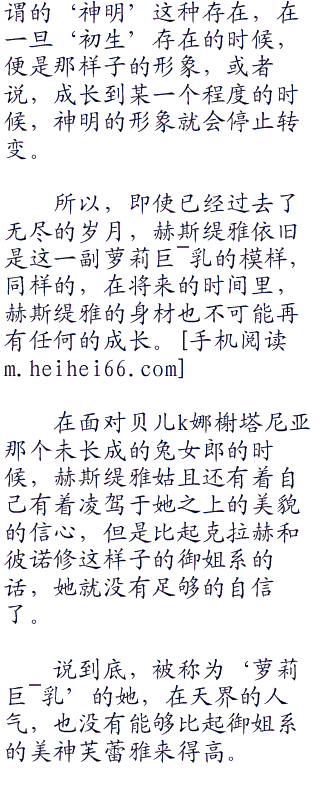 谓的‘神明’这种存在，在
一旦‘初生’存在的时候，
便是那样子的形象，或者
说，成长到某一个程度的时
候，神明的形象就会停止转
变。
所以，即使已经过去了
无尽的岁月，赫斯缇雅依旧
是这一副萝莉巨¯乳的模样，
同样的，在将来的时间里，
赫斯缇雅的身材也不可能再
有任何的成长。[手机阅读
m.heihei66.com]
在面对贝儿k娜榭塔尼亚
那个未长成的兔女郎的时
候，赫斯缇雅姑且还有着自
己有着凌驾于她之上的美貌
的信心，但是比起克拉赫和
彼诺修这样子的御姐系的
话，她就没有足够的自信
了。
说到底，被称为‘萝莉
巨¯乳’的她，在天界的人
气，也没有能够比起御姐系
的美神芙蕾雅来得高。